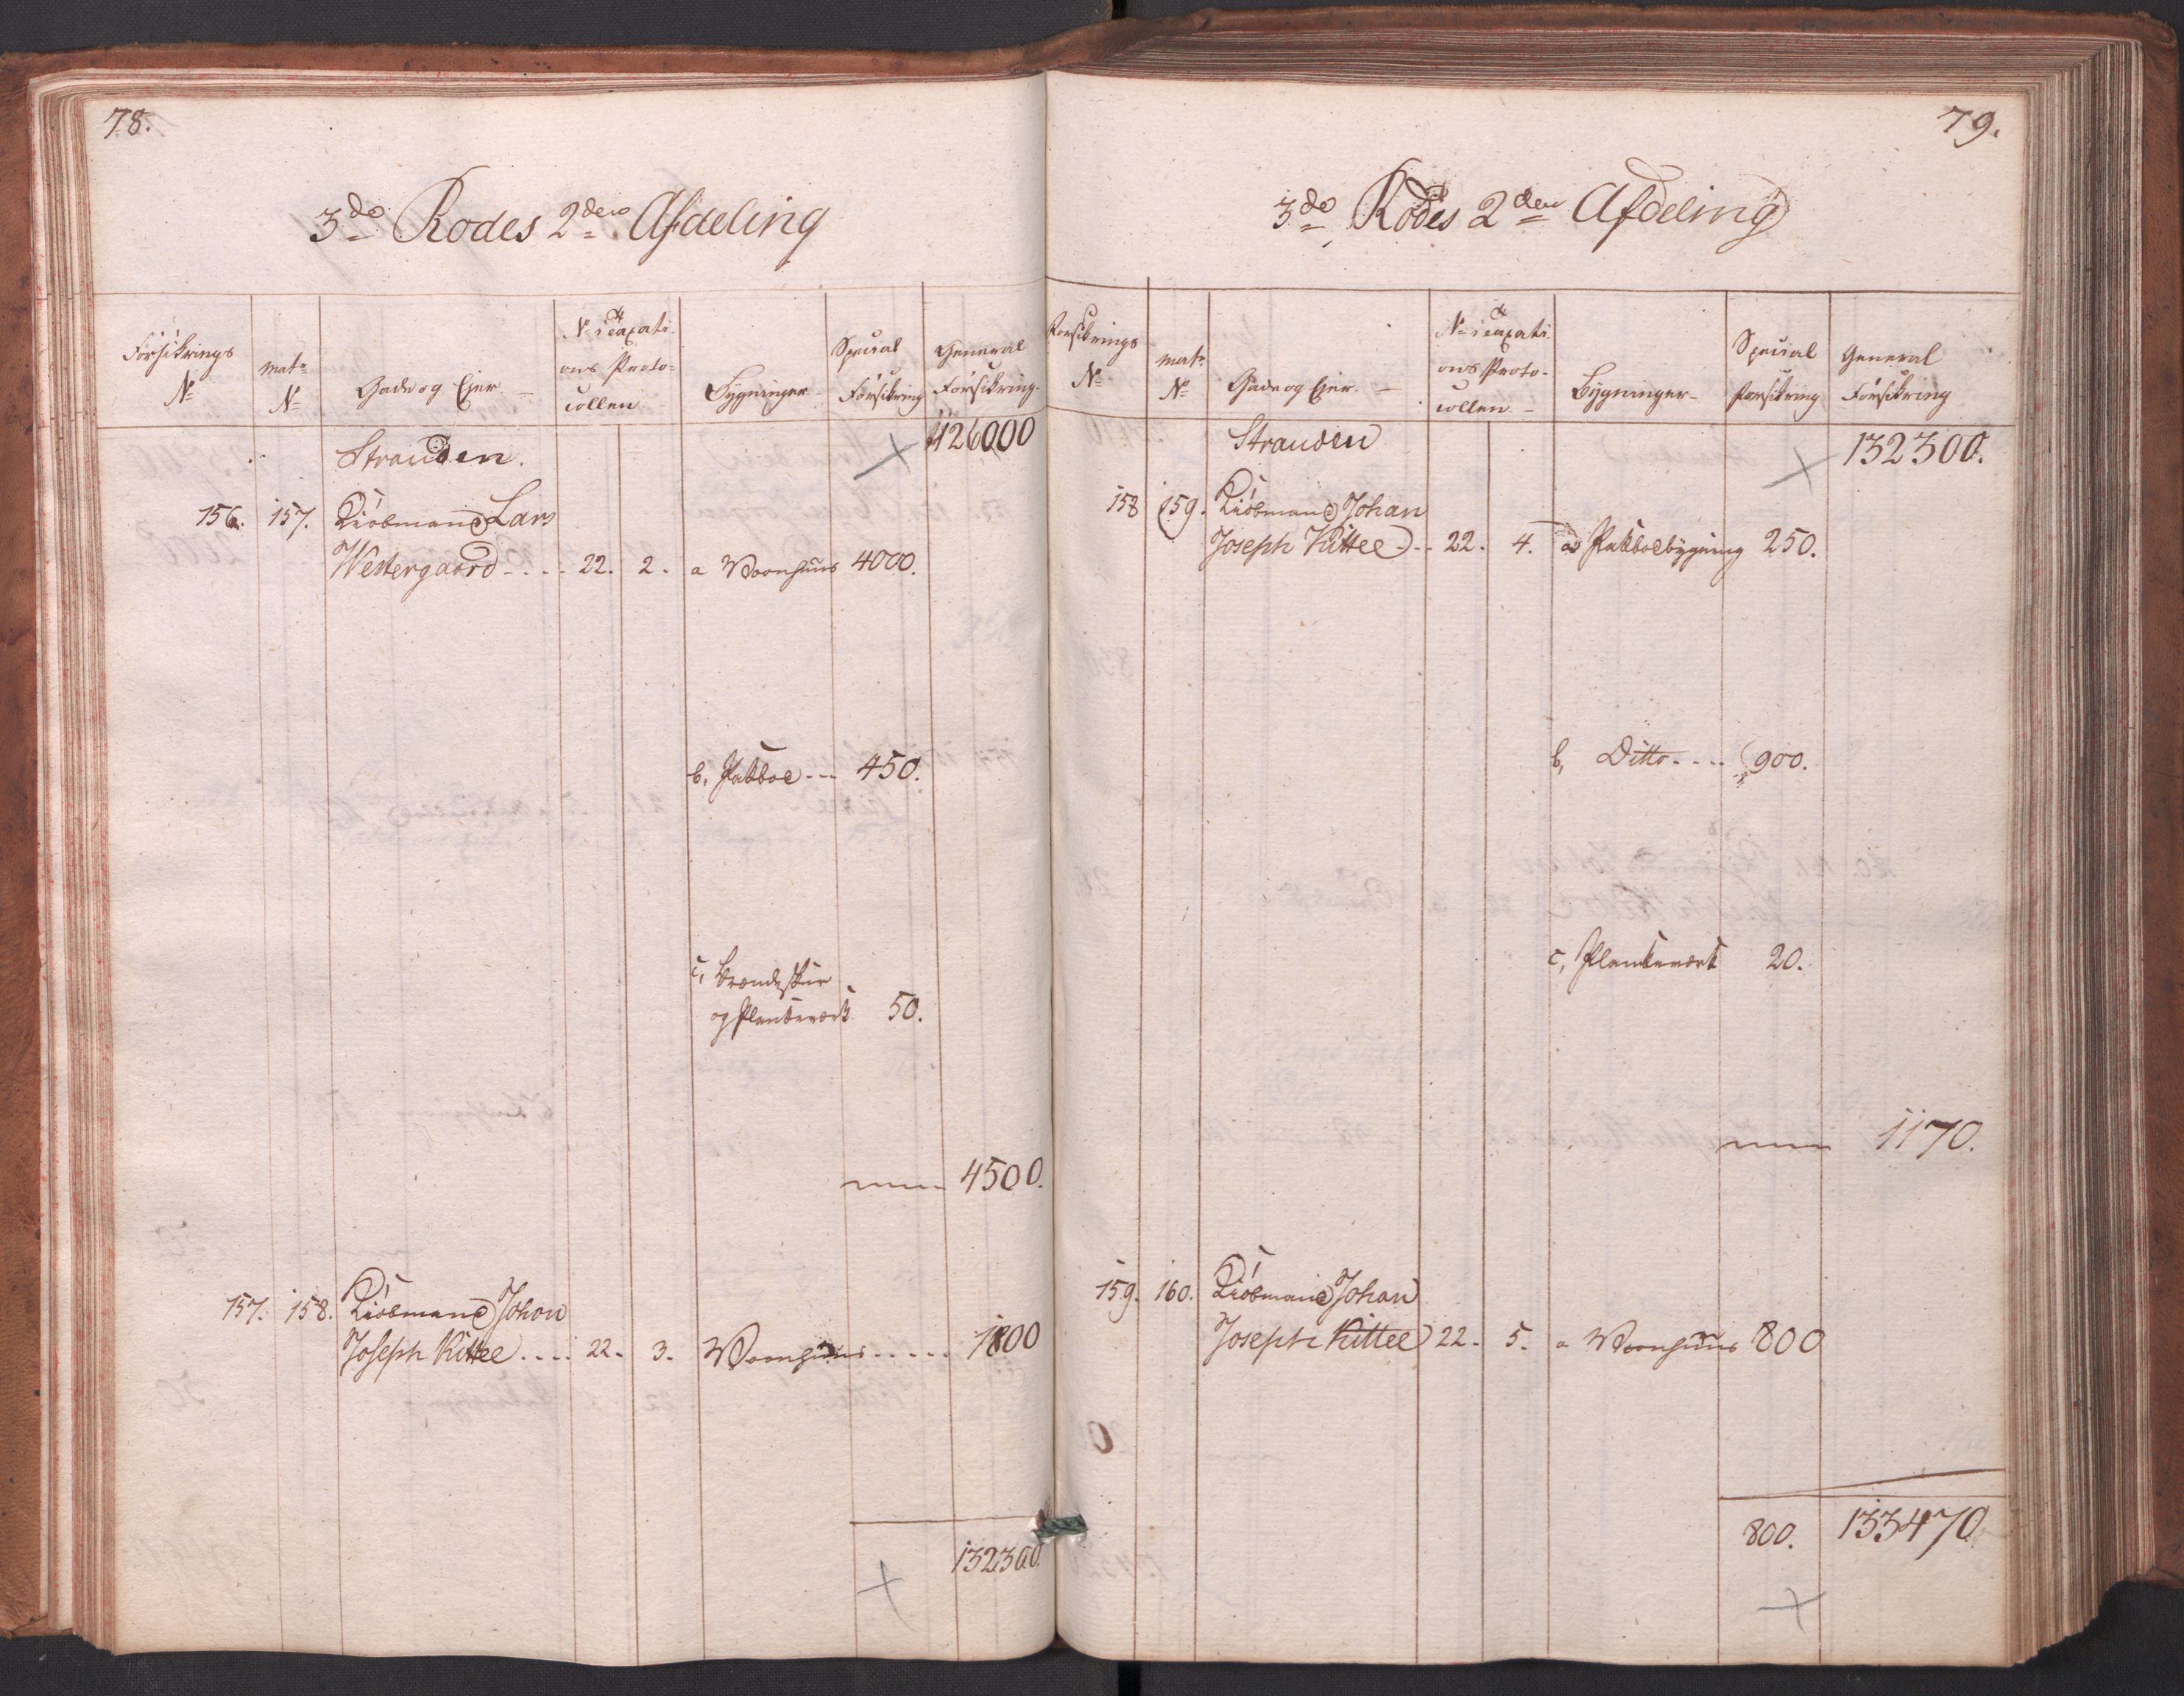 78.
3de Rodes 2den Afdeling
Forsikrings No
Matr No
Gade og Ejer
No i Taxati-
ons Proto-
collen
Bygninger
Special Forsikring
General Forsikring
Stranden.
126000
156. 157. Kiöbmand Lars
Westergaard - - - - 22. 2. a Vaanhuus 4000.
b, Pakboe - - - 450.
c, Brændeskur
og Plankeværk 50.
4500.
157. 158. Kiöbmand Johan
Joseph Kittel . . . . 22. 3. Vaanhuus . . . . . 1800
132300.
79.
3de Rodes 2den Afdeling
Forsikrings No
Matr No
Gade og Ejer
No i Taxati
ons Proto-
collen
Bygninger
Special Forsikring
General Forsikring
Stranden
132300.
158 159. Kiöbmand Johan
Joseph Kittel - - 22. 4. a Pakboebygning 250.
b, Ditto - - - - 900.
c, Plankeværk 20.
1170.
159. 160. Kiöbmand Johan
Joseph Kittel 22. 5. a Vaanhuus 800
800. 133470